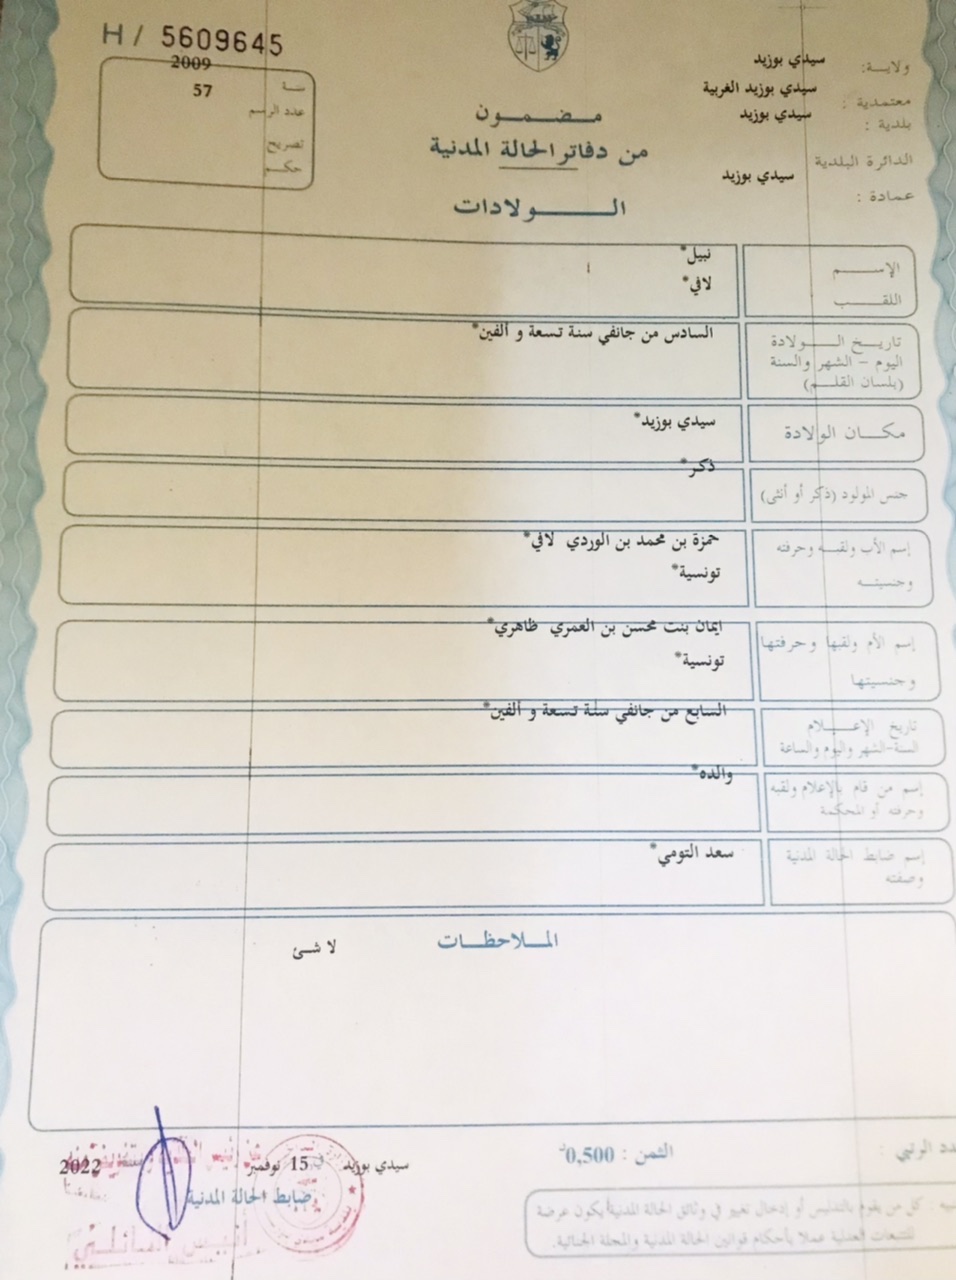 H / 5609645
سنة 2009
عدد الرسم 57
تصريح
حكم
مضمون
من دفاتر الحالة المدنية
الولادات
ولاية: سيدي بوزيد
معتمدية : سيدي بوزيد الغربية
بلدية : سيدي بوزيد
الدائرة البلدية
عمادة : سيدي بوزيد
الإسم نبيل*
اللقب لافي*
تاريخ الولادة السادس من جانفي سنة تسعة و ألفين*
اليوم – الشهر والسنة
(بلسان القلم)
مكان الولادة سيدي بوزيد*
جنس المولود (ذكر أو أنثى) ذكر*
إسم الأب ولقبه وحرفته حمزة بن محمد بن الوردي لافي*
وجنسيته تونسية*
إسم الأم ولقبها وحرفتها ايمان بنت محسن بن العمري ظاهري*
وجنسيتها تونسية*
تاريخ الإعلام السابع من جانفي سنة تسعة و ألفين*
السنة-الشهر واليوم والساعة
إسم من قام بالإعلام ولقبه والده*
وحرفته أو المحكمة
إسم ضابط الحالة المدنية سعد التومي*
وصفته
الملاحظات
لا شئ
سيدي بوزيد في 15 نوفمبر 2022
ضابط الحالة المدنية
الثمن : 0,500د
عدد الرتبي :
كل من يقوم بالتدليس أو إدخال تغيير في وثائق الحالة المدنية يكون عرضة
للتتبعات العدلية عملا بأحكام قوانين الحالة المدنية والمجلة الجنائية.